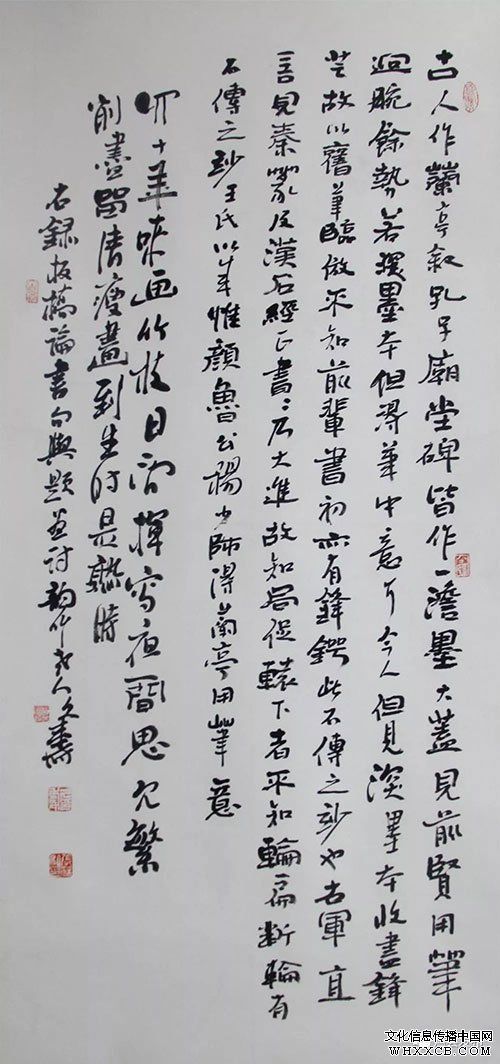 古人作蘭亭叙孔子廟堂碑皆作一澹墨本蓋見前賢用筆
迴腕餘勢若深墨本但得筆中意耳今人但見深墨本收盡鋒
芒故以舊筆臨倣不知前輩書初亦有鋒鍔此不傳之妙也右軍自
言見秦篆及漢石經正書書乃大進故知局促轅下者不知輪扁斫輪有
不傳之妙王氏以來惟顔魯公楊少師得蘭亭用筆意
四十年來画竹枝日間揮寫夜間思冗繁
削盡留清瘦畫到生時是熟時
右録板橋論書句與題画詩韵竹老人
文化信息传播中国网
WHXXCB.COM